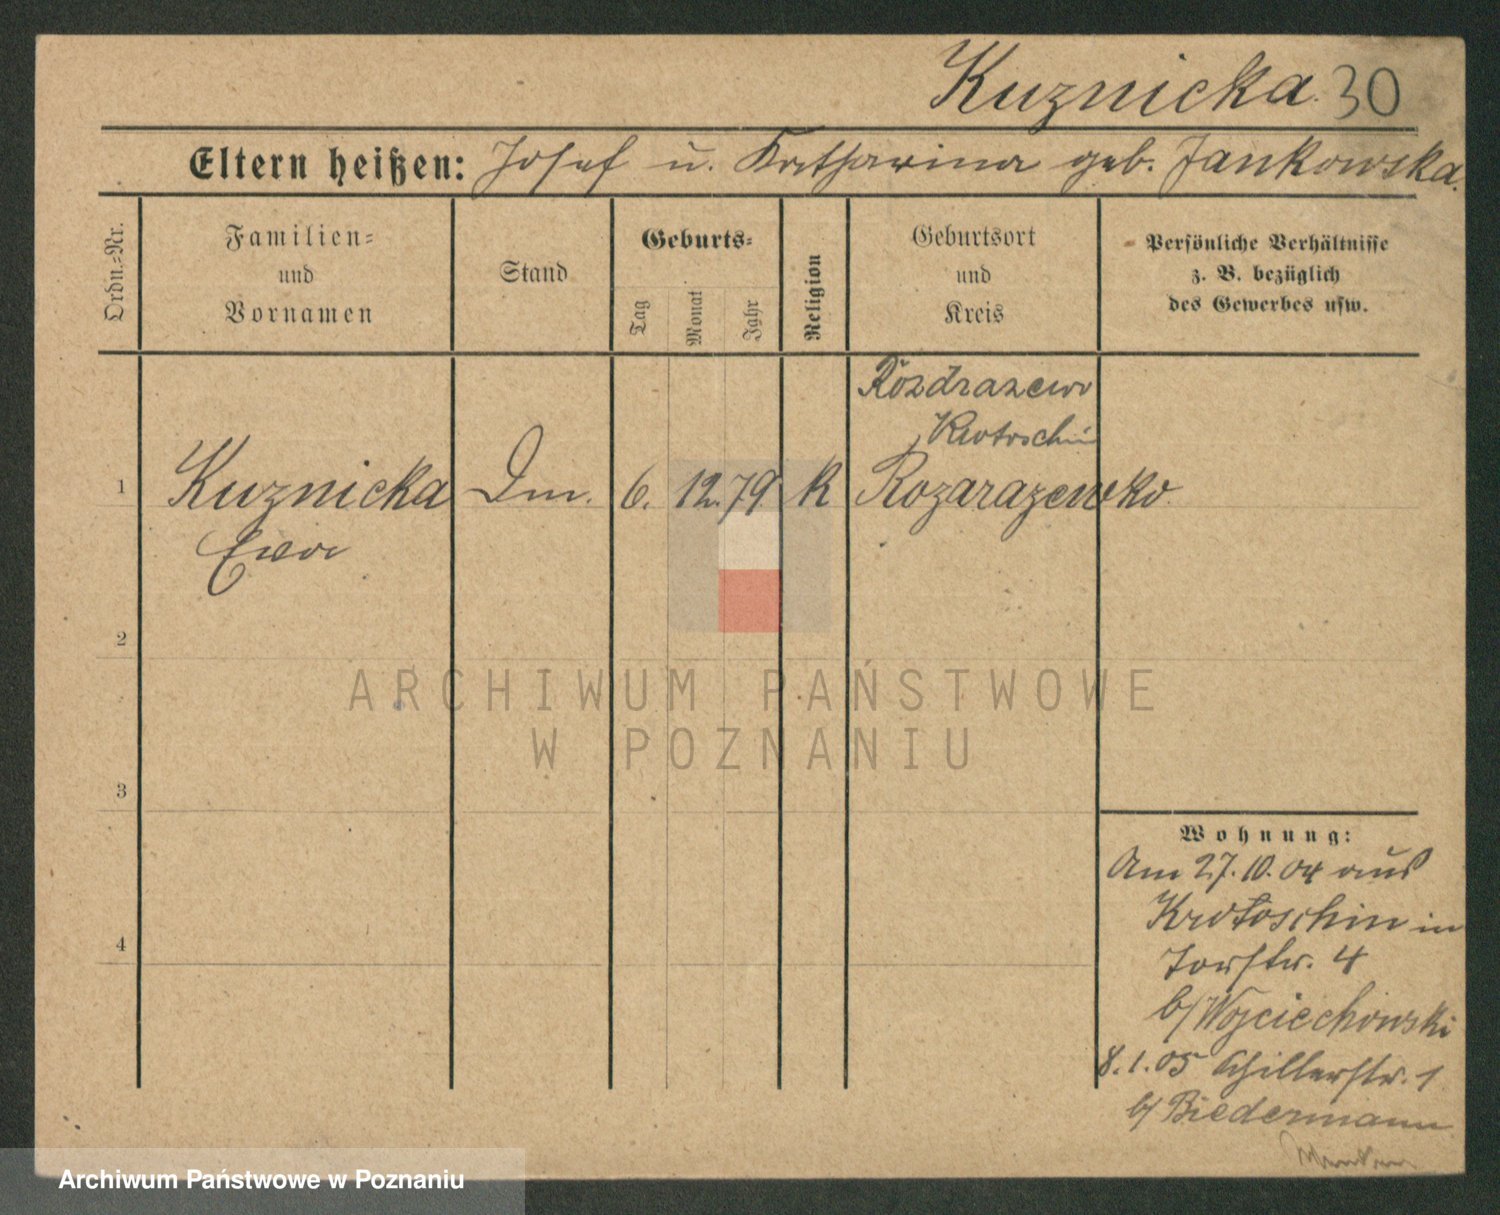 Kuznicka. 30
Eltern heißen: Josef u. Katharina geb. Jankowska.
Ordn.-Nr.
Familien-
und
Vornamen
Stand
Geburts-
Tag
Monat
Jahr
Religion
Geburtsort
und
Kreis
Persönliche Verhältnisse
z. B. bezüglich
des Gewerbes usw.
Rozdrazewo
Krotoschin
1 Kuznicka Dm. 6. 12. 79 K Rozdrazewko
Ewa
2
3
4
ARCHIWUM PAŃSTWOWE
W POZNANIU
Wohnung:
Am 27.10.04 aus
Krotoschin in
Torstr. 4
b/ Wojciechowski
8.1.05 Schillerstr. 1
b/ Biedermann
Archiwum Państwowe w Poznaniu